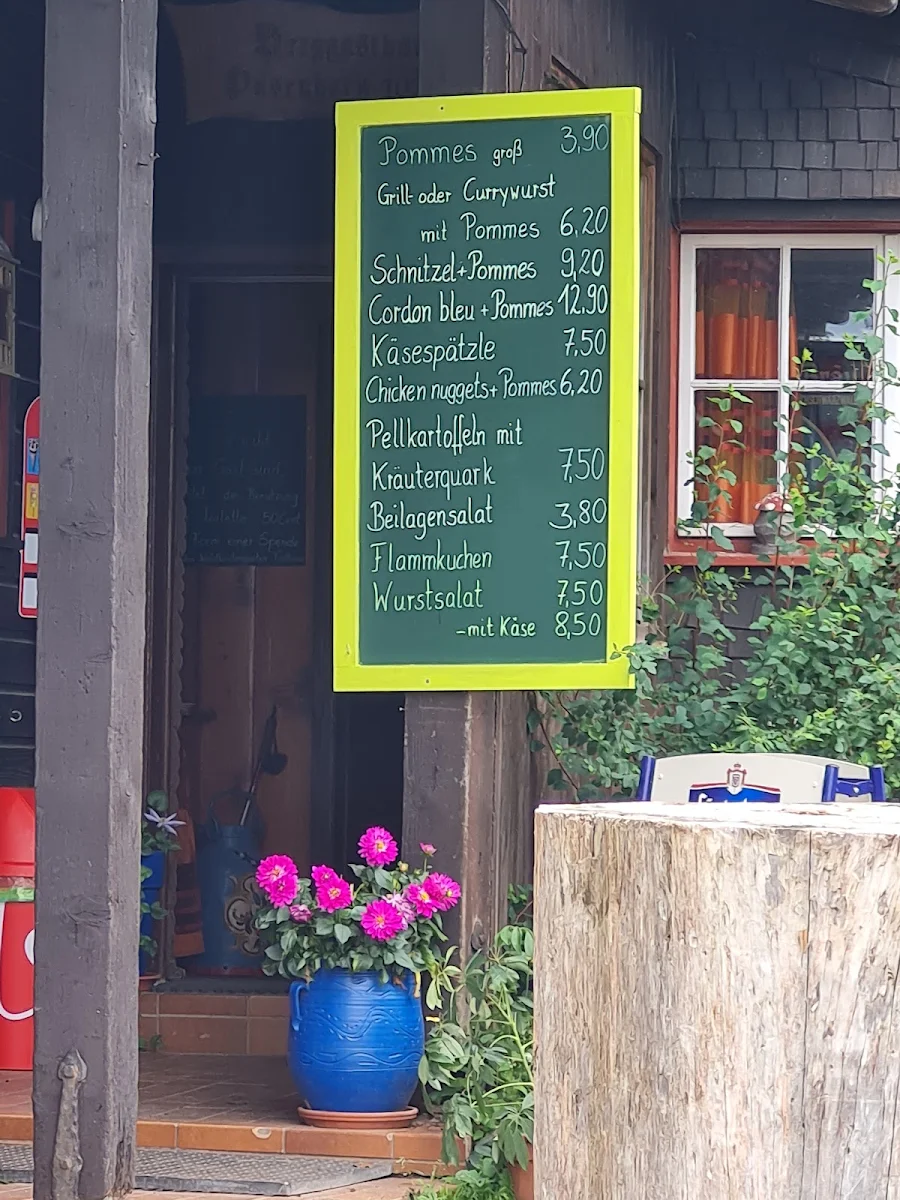 Pommes groß 3,90
Grill- oder Currywurst
mit Pommes 6,20
Schnitzel+Pommes 9,20
Cordon bleu +Pommes 12,90
Käsespätzle 7,50
Chicken nuggets+Pommes 6,20
Pellkartoffeln mit
Kräuterquark 7,50
Beilagensalat 3,80
Flammkuchen 7,50
Wurstsalat 7,50
-mit Käse 8,50